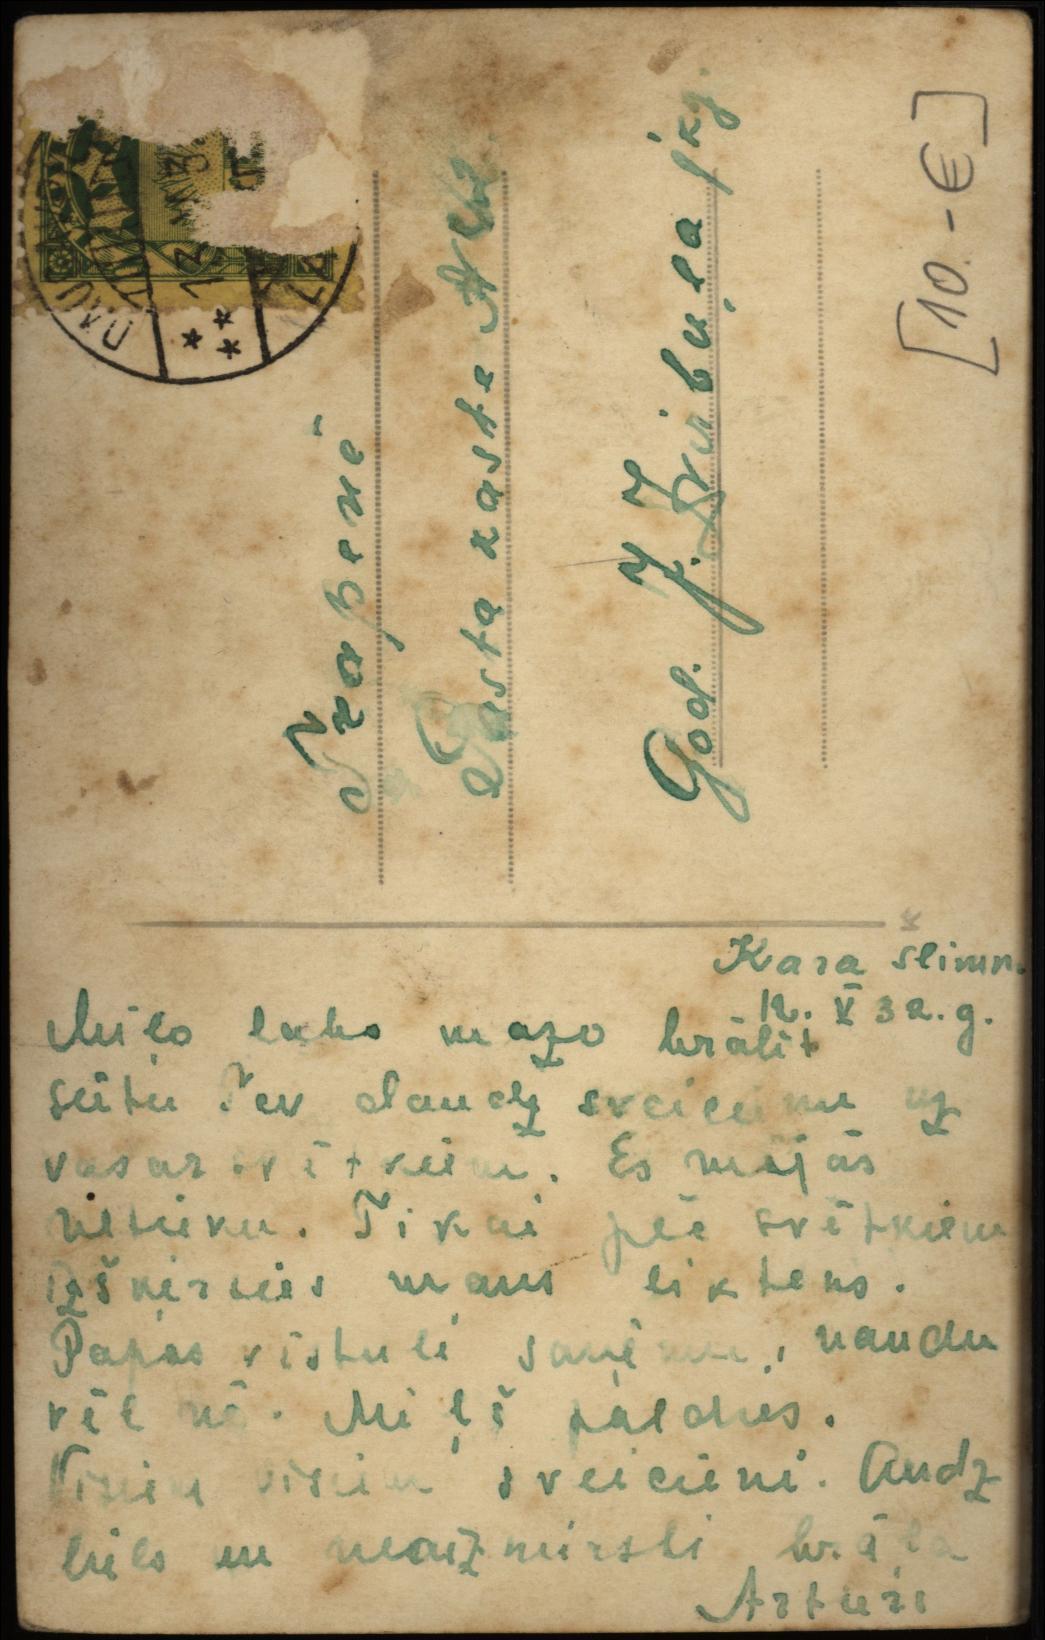 [10.-€]
God. J. Zvirbuļa jkg.
Pasta kaste №
Ņ
Kara slimn.
12. V 32. g.
Mīļo labo mazo brālīt
sūtu Tev daudz sveicienu uz
vasarsvētkiem. Es mājās
netieku. Tikai pēc svētkiem
izšķirsies mans liktens.
Papas vēstuli saņēmu, naudu
vēl nē. Mīļš paldies.
Visiem visiem sveicieni. Audz
liels un neaizmirsti brāļa
Arturs